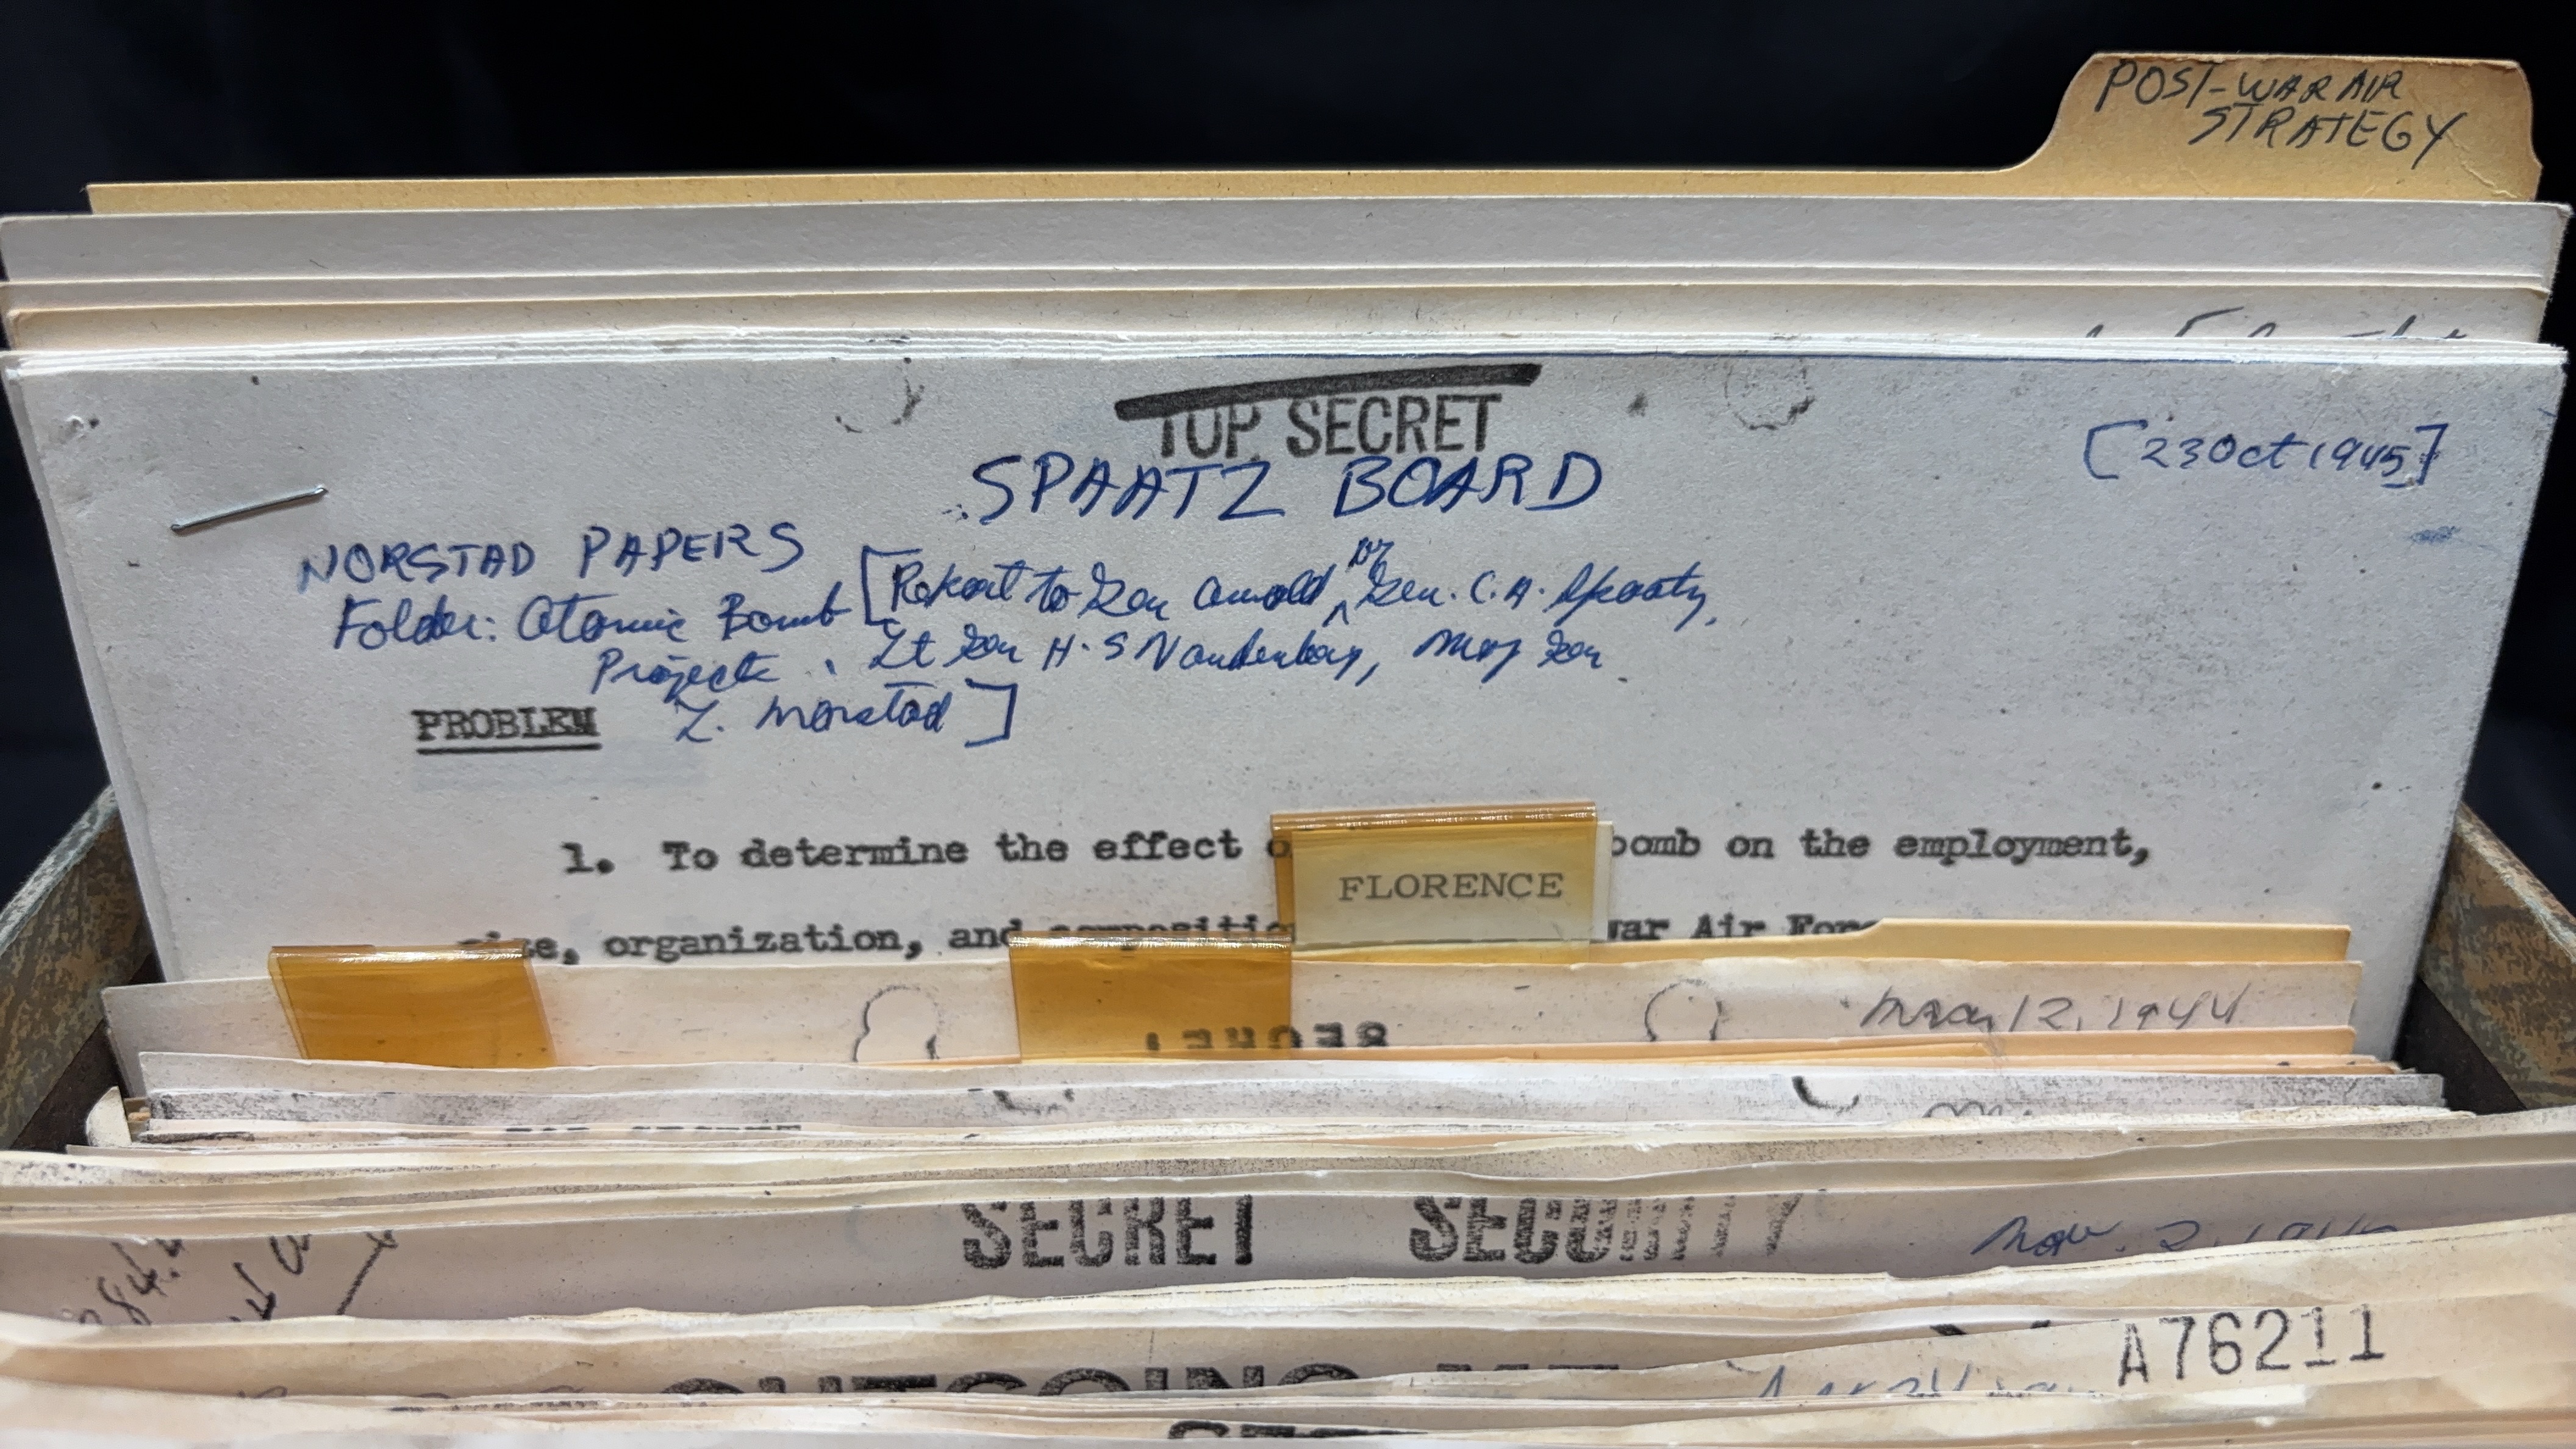 POST-WAR AIR
STRATEGY
TOP SECRET
[23 Oct 1945]
SPAATZ BOARD
NORSTAD PAPERS
Folder: Atomic Bomb [Report to Gen Arnold by Gen. C.A. Spaatz,
Project Lt Gen H.S Vandenberg, Maj Gen
L. Norstad]
PROBLEM
1. To determine the effect bomb on the employment,
FLORENCE
organization, and War Air
12, 1944
SECRET
SECRET SECURITY
Nov. 2,
A76211
OUTGOING